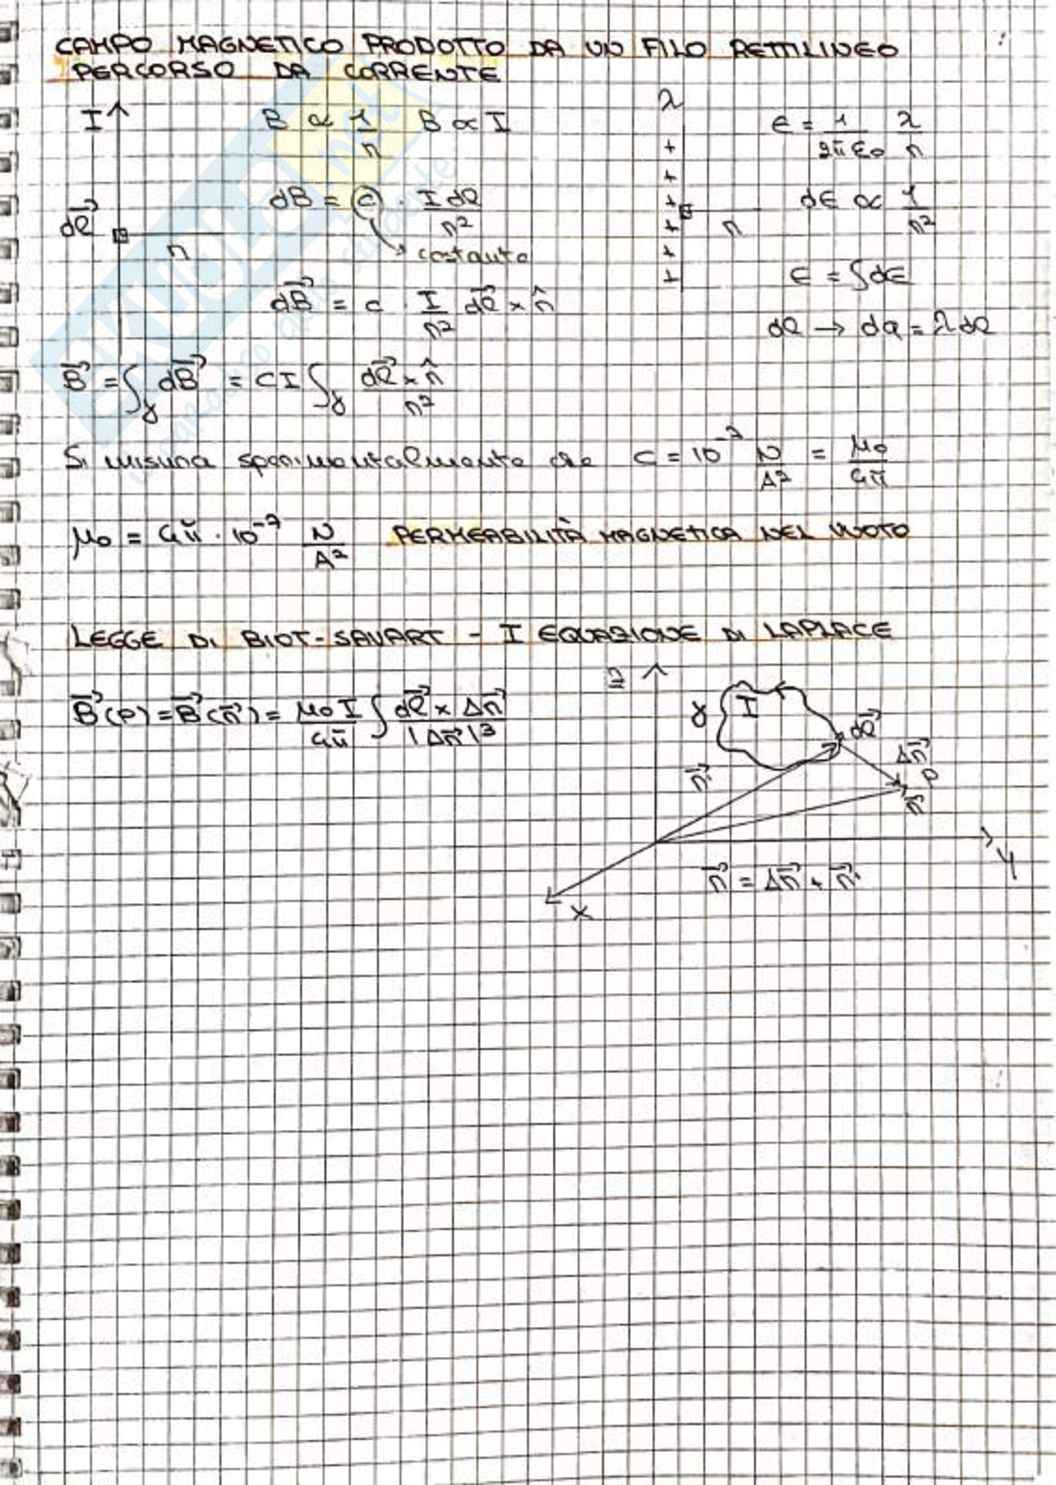 CAMPO MAGNETICO PRODOTTO DA UN FILO RETTILINEO
PERCORSO DA CORRENTE
I
B ∝ 1/r B ∝ I
dB = c · I dl / r²
costante
dl⃗
r
dB⃗ = c · I/r² dl⃗ × r̂
λ
+
+
+
+
+
+
r
E = 1/(2πε₀) λ/r
dE ∝ 1/r²
E = ∫dE
dl → dq = λdl
B⃗ = ∫γ dB⃗ = cI ∫γ dl⃗ × r̂ / r²
Si misura sperimentalmente che c = 10⁻⁷ N/A² = μ₀/4π
μ₀ = 4π · 10⁻⁷ N/A² PERMEABILITÀ MAGNETICA NEL VUOTO
LEGGE DI BIOT-SAVART - I EQUAZIONE DI LAPLACE
B⃗(P) = B⃗(r⃗) = μ₀I/4π ∫ dl⃗ × Δr⃗ / |Δr⃗|³
z
γ
I
dl⃗
Δr⃗
P
r⃗'
r⃗
y
x
r⃗ = Δr⃗ + r⃗'